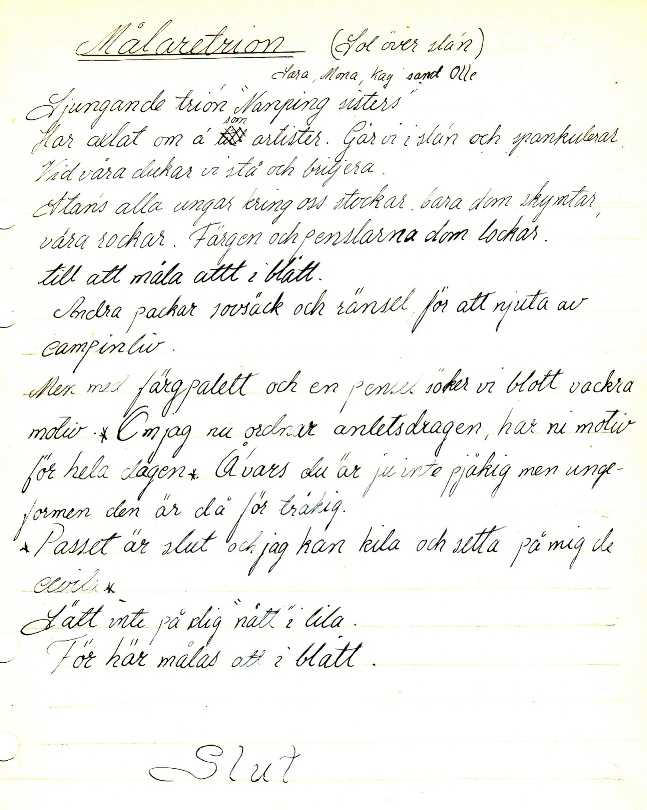 Målaretrion (Sol över slán)
Sara, Mona, Kaj samt Olle
Ljungande trion "Nanping sisters"
Har axlat om á som artister. Går vi i slán och spankulerar
Vid våra dukar vi stå och briljera.
Stans alla ungar kring oss stockar, bara dom skymtar,
våra rockar. Färgen och penslarna dom lockar.
till att måla allt i blått.
Andra packar sovsäck och ränsel, för att njuta av
campinliv.
Men med färgpalett och en pensel söker vi blott vackra
motiv * Om jag nu ordnar anletsdragen, har ni motiv
för hela dagen * Åvars du är ju inte pjåkig men unge-
formen den är då för tråkig.
* Passet är slut och jag kan kila och sätta på mig de
civila *
Sätt inte på dig "nått" i lila.
För här målas allt i blått.
Slut